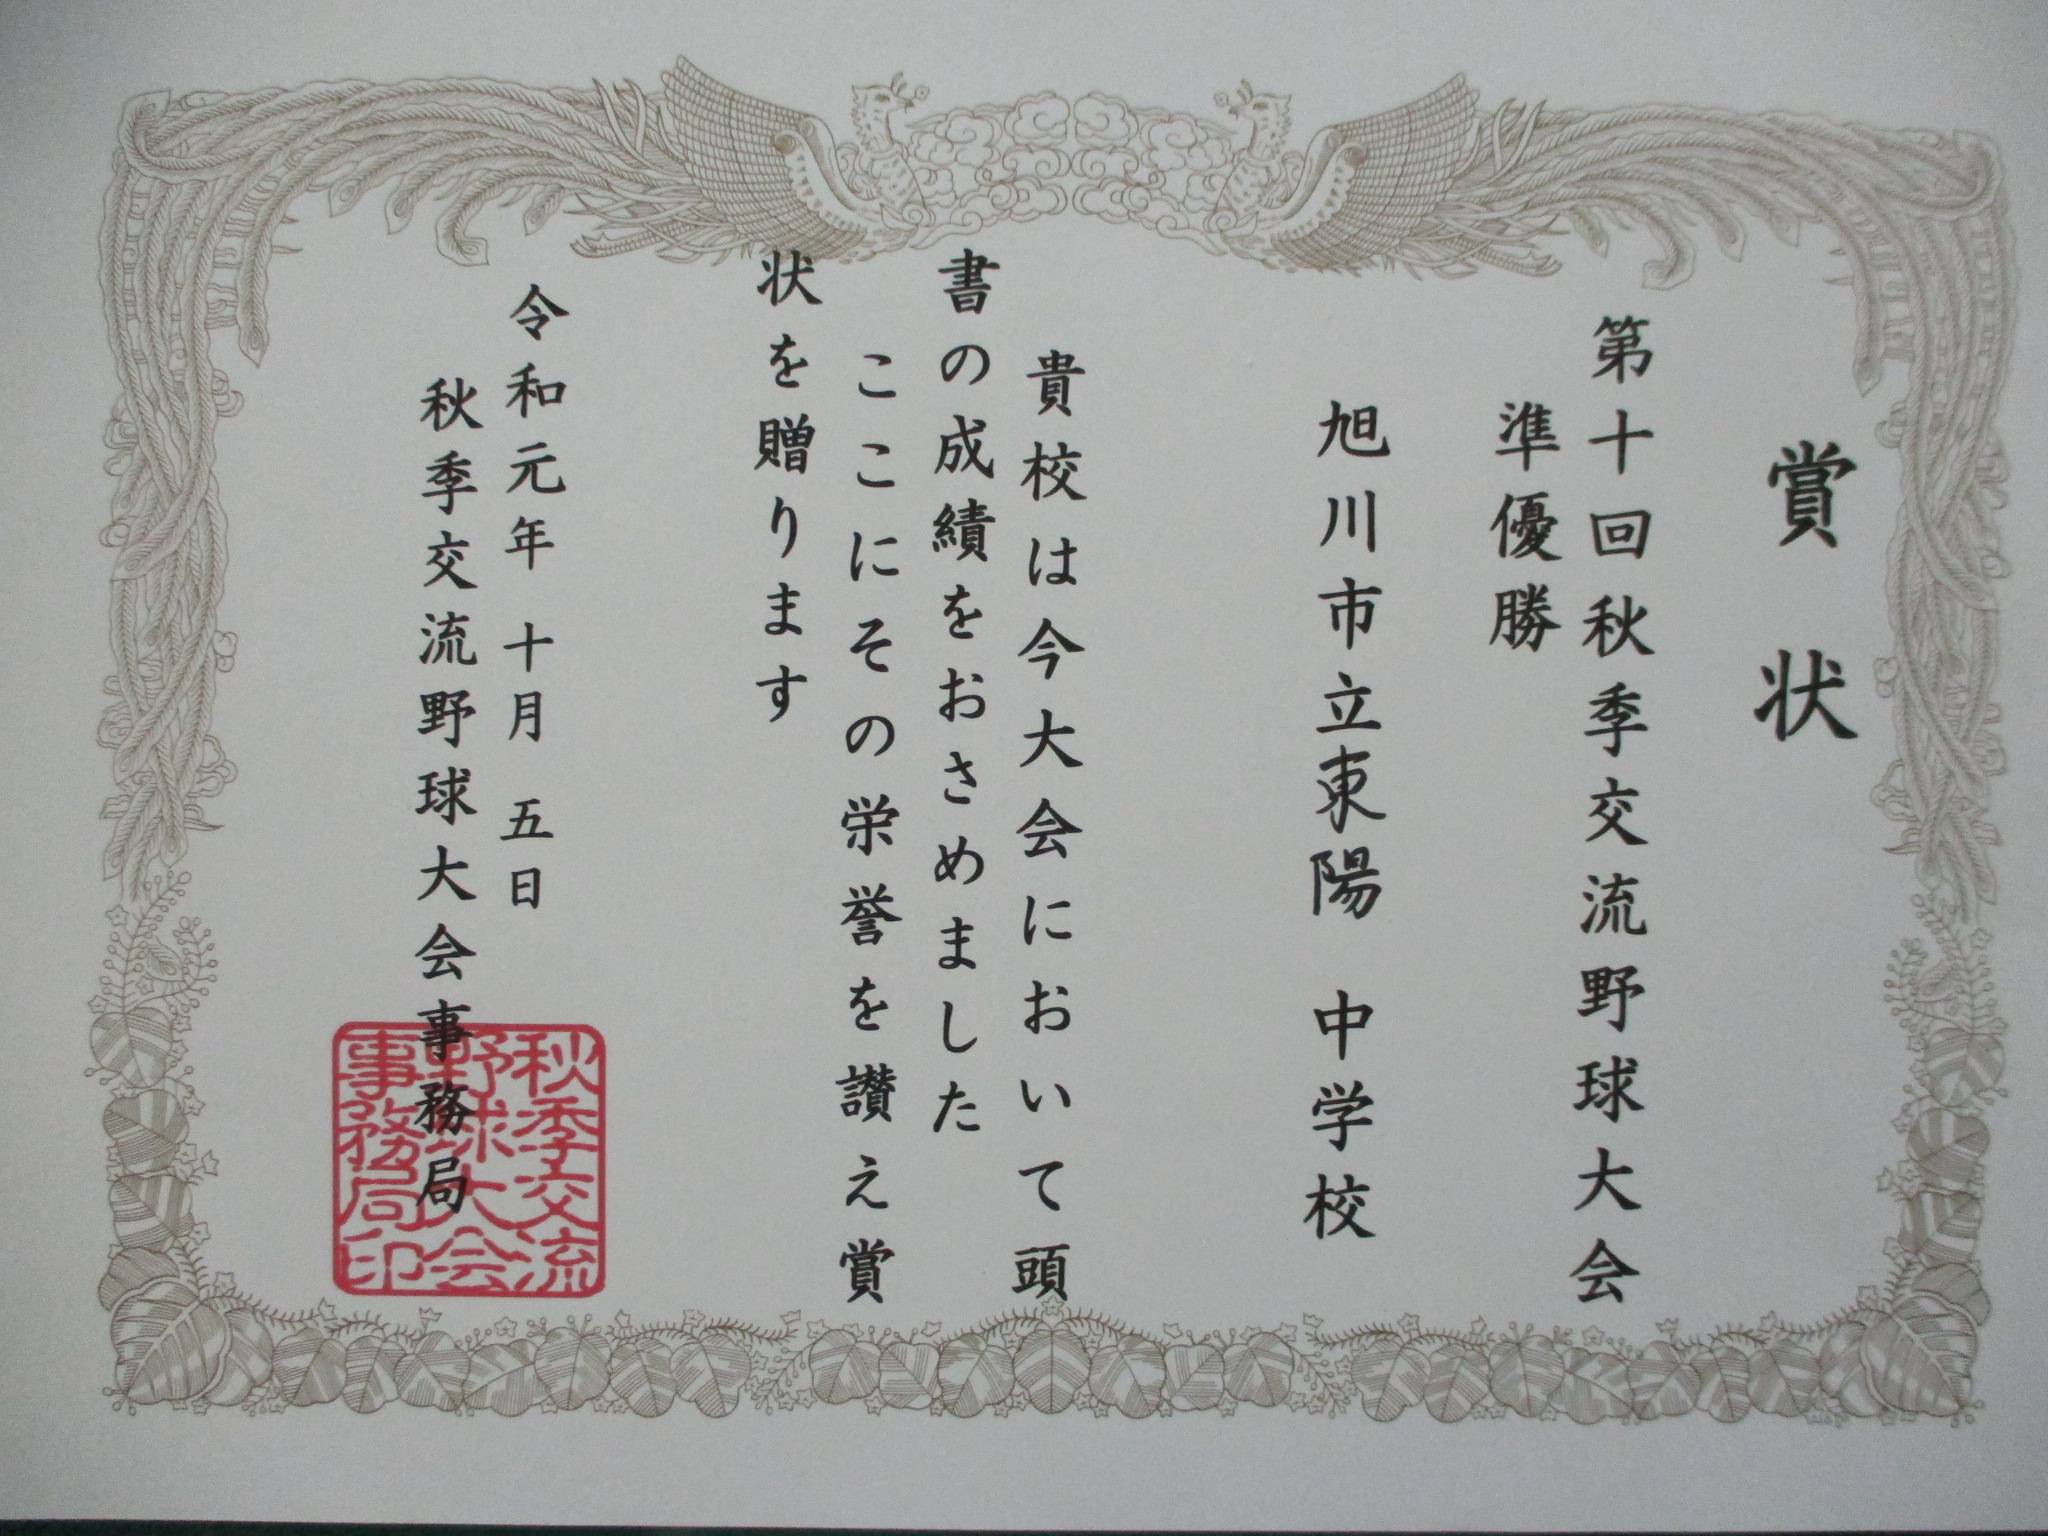 賞状
第十回秋季交流野球大会
準優勝
旭川市立東陽 中学校
貴校は今大会において頭
書の成績をおさめました
ここにその栄誉を讃え賞
状を贈ります
令和元年 十月 五日
秋季交流野球大会事務局
秋季交流
野球大会
事務局印